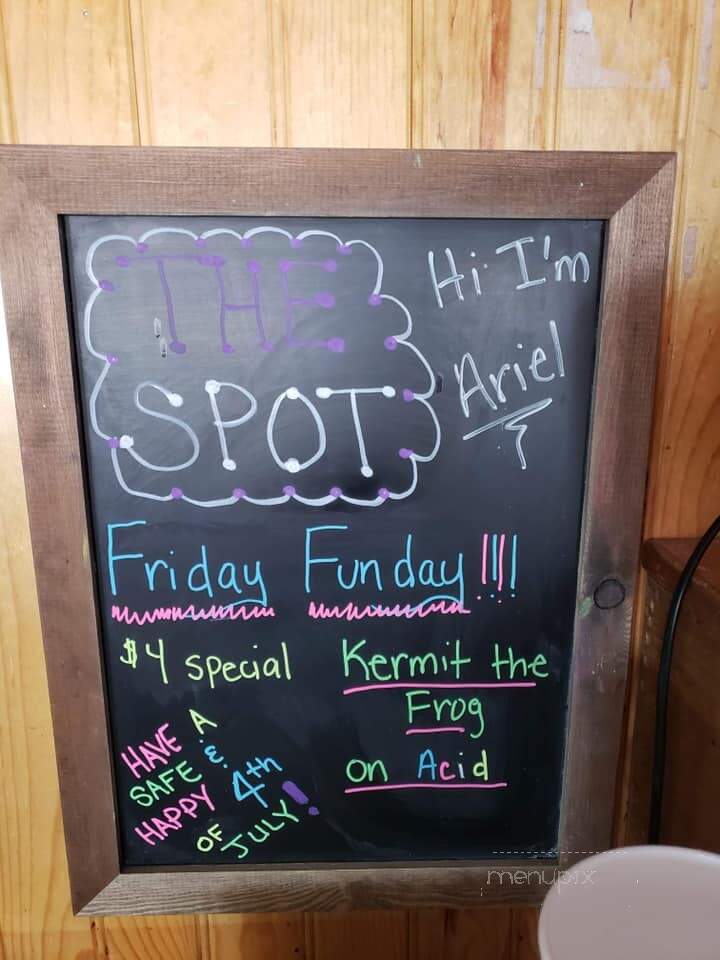 THE
SPOT
Hi I'm
Ariel
Friday Funday!!!!
$4 special
Kermit the
Frog
on Acid
HAVE A
SAFE &
HAPPY 4th
OF JULY!
menupix